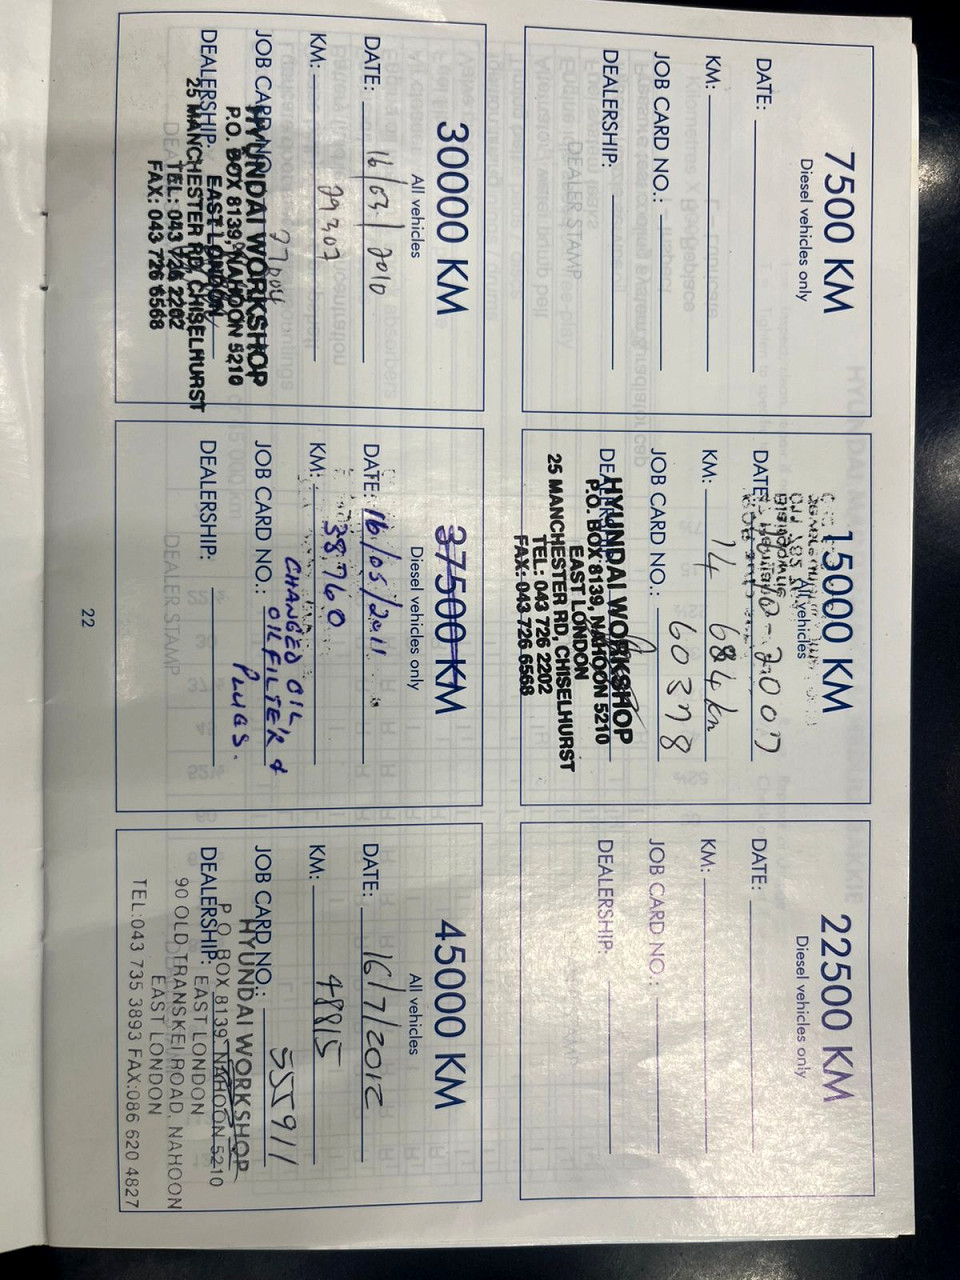 7500 KM
Diesel vehicles only
DATE:
KM:
JOB CARD NO.:
DEALERSHIP:
15000 KM
All vehicles
DATE: 2007
KM: 14 684 km
JOB CARD NO.: 60378
DEALERSHIP:
HYUNDAI WORKSHOP
P.O. BOX 8139, NAHOON 5210
EAST LONDON
25 MANCHESTER RD, CHISELHURST
TEL: 043 726 2202
FAX: 043 726 6568
22500 KM
Diesel vehicles only
DATE:
KM:
JOB CARD NO.:
DEALERSHIP:
30000 KM
All vehicles
DATE: 16/03/2010
KM: 29307
JOB CARD NO.:
HYUNDAI WORKSHOP
P.O. BOX 8139, NAHOON 5210
DEALERSHIP: EAST LONDON
25 MANCHESTER RD, CHISELHURST
TEL: 043 726 2202
FAX: 043 726 6568
37500 KM
Diesel vehicles only
DATE: 16/05/2011
KM: 38760
CHANGED OIL
JOB CARD NO.: OIL FILTER &
PLUGS.
DEALERSHIP:
45000 KM
All vehicles
DATE: 16/7/2012
KM: 48815
JOB CARD NO.: 55911
HYUNDAI WORKSHOP
P.O. BOX 8139 NAHOON 5210
DEALERSHIP: EAST LONDON
90 OLD TRANSKEI ROAD, NAHOON
EAST LONDON
TEL:043 735 3893 FAX:086 620 4827
22